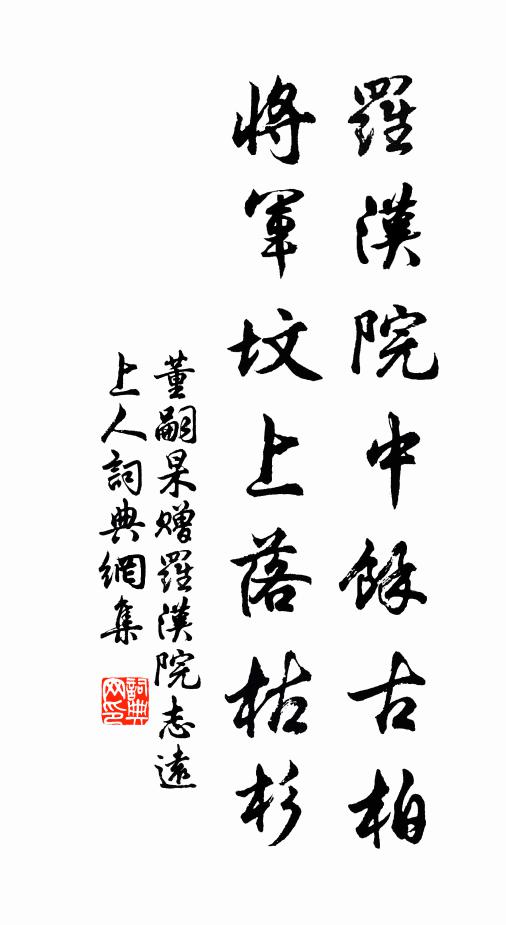 羅漢院中餘古柏
將軍墳上落枯杉
董嗣杲贈羅漢院志遠
上人詞典網集
詞典网印